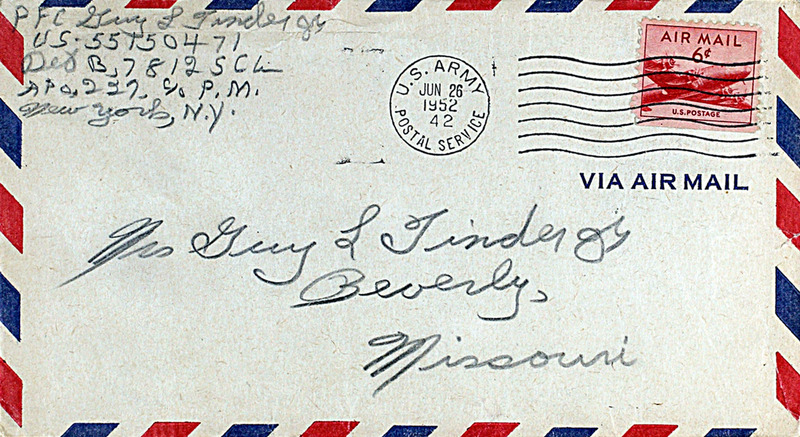 PFC Guy L Tinder Jr
US. 55150471
Det B, 7812 SCU
APO, 227, % P.M.
New York, N.Y.
U.S. ARMY
JUN 26
1952
42
POSTAL SERVICE
AIR MAIL
6¢
U.S. POSTAGE
VIA AIR MAIL
Mrs Guy L Tinder Jr
Beverly,
Missouri